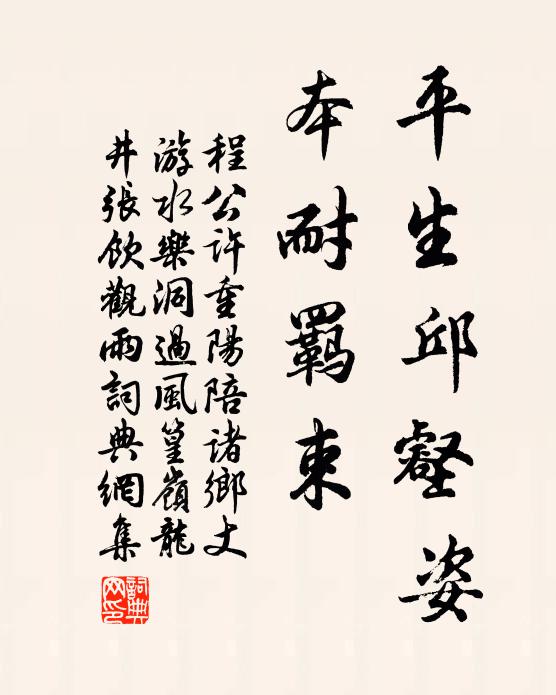 平生邱壑姿
夲耐羈束
程公许重陽陪诸鄉丈
游水樂洞過風篁嶺龍
井張飲觀雨詞典網集
詞典网印